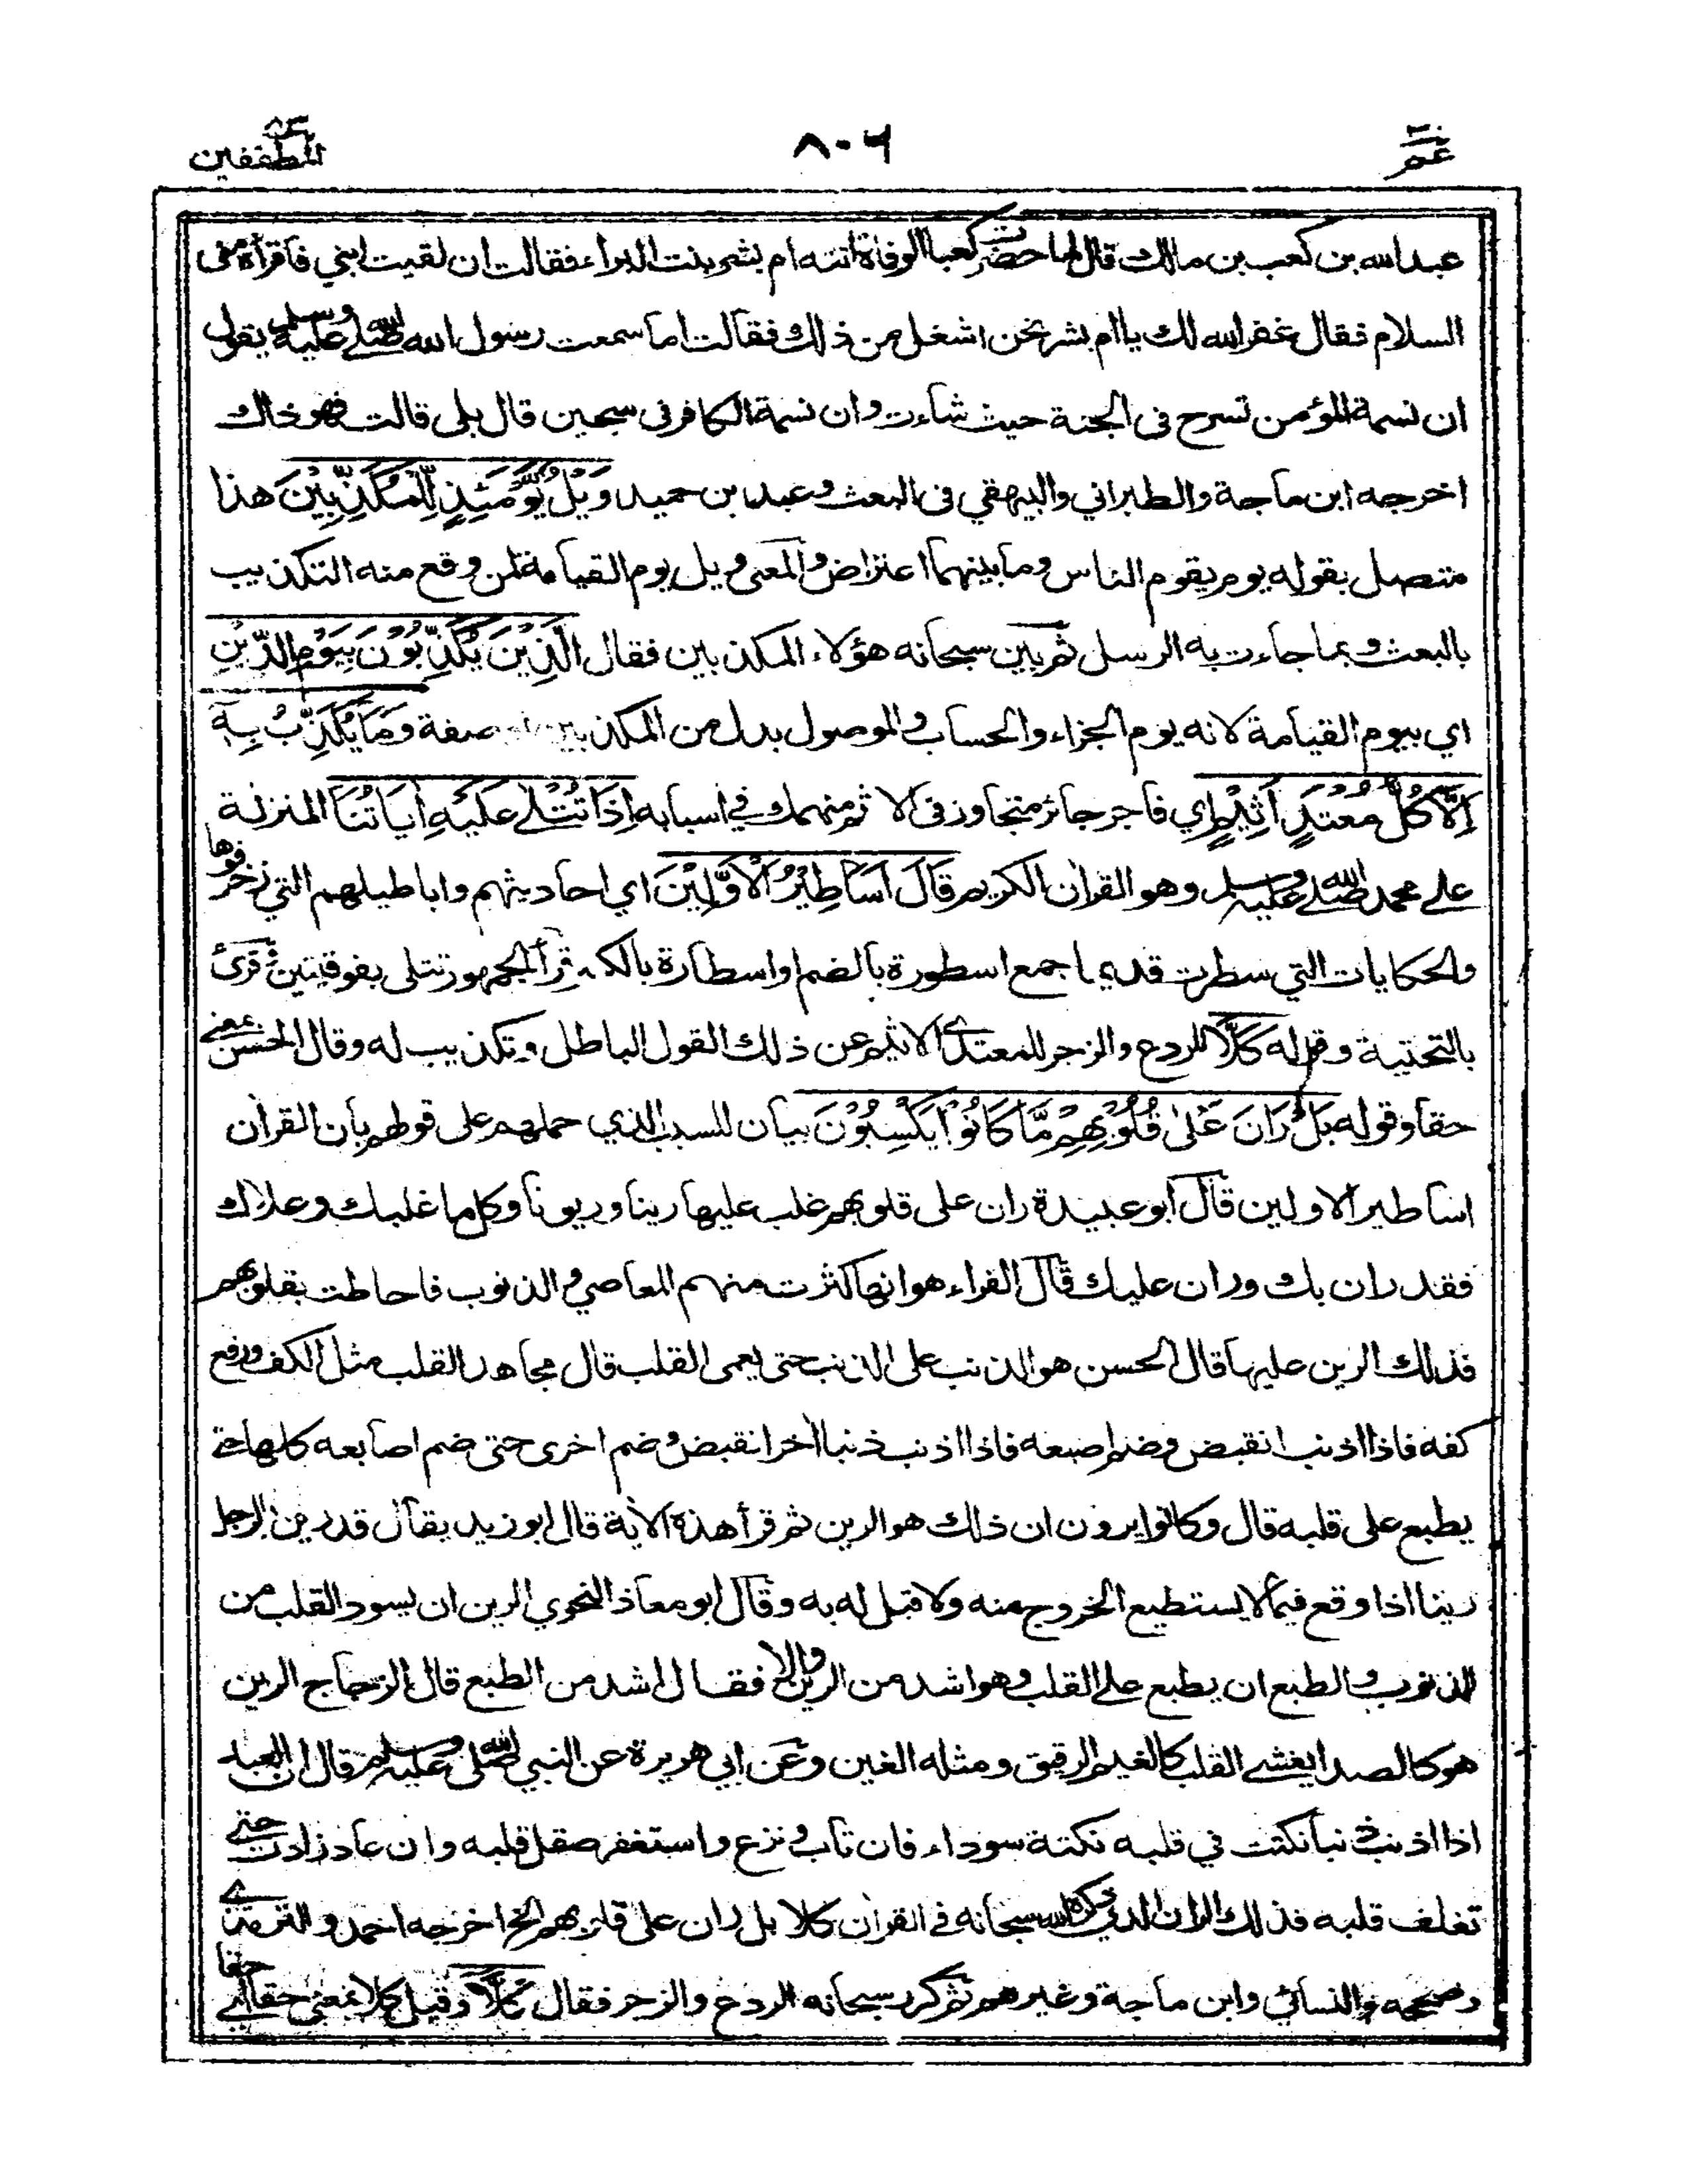 عم
٨٠٦
المطففين
عبد الله بن كعب بن مالك قال لما حضرت كعبا الوفاة اتته ام بشر بنت البراء فقالت ان لقيت ابني فاقرأه مني
السلام فقال غفر الله لك يا ام بشر نحن اشغل من ذلك فقالت اما سمعت رسول الله صلى الله عليه وسلم يقول
ان نسمة المؤمن تسرح فى الجنة حيث شاءت وان نسمة الكافر فى سجين قال بلى قالت فهو ذاك
اخرجه ابن ماجة والطبراني والبيهقي فى البعث وعبد بن حميد وَيْلٌ يَّوْمَئِذٍ لِّلْمُكَذِّبِيْنَ هذا
متصل بقوله يوم يقوم الناس وما بينهما اعتراض والمعنى ويل يوم القيامة لمن وقع منه التكذيب
بالبعث وبما جاءت به الرسل ثم بين سبحانه هؤلاء المكذبين فقال الَّذِيْنَ يُكَذِّبُوْنَ بِيَوْمِ الدِّيْنِ
اي بيوم القيامة لانه يوم الجزاء والحساب والموصول بدل من المكذبين او صفة وَمَا يُكَذِّبُ بِهٖ
اِلَّا كُلُّ مُعْتَدٍ اَثِيْمٍ اي فاجر جائر متجاوز فى الاثم منهمك في اسبابه اِذَا تُتْلٰى عَلَيْهِ اٰيَاتُنَا المنزلة
على محمد صلى الله عليه وسلم وهو القران الكريم قَالَ اَسَاطِيْرُ الْاَوَّلِيْنَ اي احاديثهم واباطيلهم التي زخرفوها
والحكايات التي سطرت قديما جمع اسطورة بالضم او اسطارة بالكسر قرأ الجمهور تتلى بفوقيتين وقرئ
بالتحتية وقوله كَلَّا للردع والزجر للمعتدى الاثيم عن ذلك القول الباطل وتكذيب له وقال الحسن بمعنى
حقا وقوله بَلْ رَانَ عَلٰى قُلُوْبِهِمْ مَّا كَانُوْا يَكْسِبُوْنَ بيان للسبب الذي حملهم على قولهم بأن القران
اساطير الاولين قال ابو عبيدة ران على قلوبهم غلب عليها رينا وريونا وكل ما غلبك وعلاك
فقد ران بك وران عليك قال الفراء هو انها كثرت منهم المعاصي والذنوب فاحاطت بقلوبهم
فذلك الرين عليها قال الحسن هو الذنب على الذنب حتى يعمى القلب قال مجاهد القلب مثل الكف ورفع
كفه فاذا اذنب انقبض وضم اصبعه فاذا اذنب ذنبا اخر انقبض وضم اخرى حتى ضم اصابعه كلها حتى
يطبع على قلبه قال وكانوا يرون ان ذلك هو الرين ثم قرأ هذه الاية قال ابو زيد يقال قد رين الرجل
رينا اذا وقع فيما لا يستطيع الخروج منه ولا قبل له به وقال ابو معاذ النحوي الرين ان يسود القلب من
الذنوب والطبع ان يطبع على القلب وهو اشد من الرين والاقفال اشد من الطبع قال الزجاج الرين
هو كالصدا يغشى القلب كالغيم الرقيق ومثله الغين وعن ابي هريرة عن النبي صلى الله عليه وسلم قال ان العبد
اذا اذنب ذنبا نكتت في قلبه نكتة سوداء فان تاب ونزع واستغفر صقل قلبه وان عاد زادت حتى
تغلف قلبه فذلك الران الذي ذكره الله سبحانه في القران كلا بل ران على قلوبهم الخ اخرجه احمد والترمذي
وصححه والنسائي وابن ماجة وغيرهم ثم كرر سبحانه الردع والزجر فقال كَلَّا وقيل كلا بمعنى حقا اي حقا